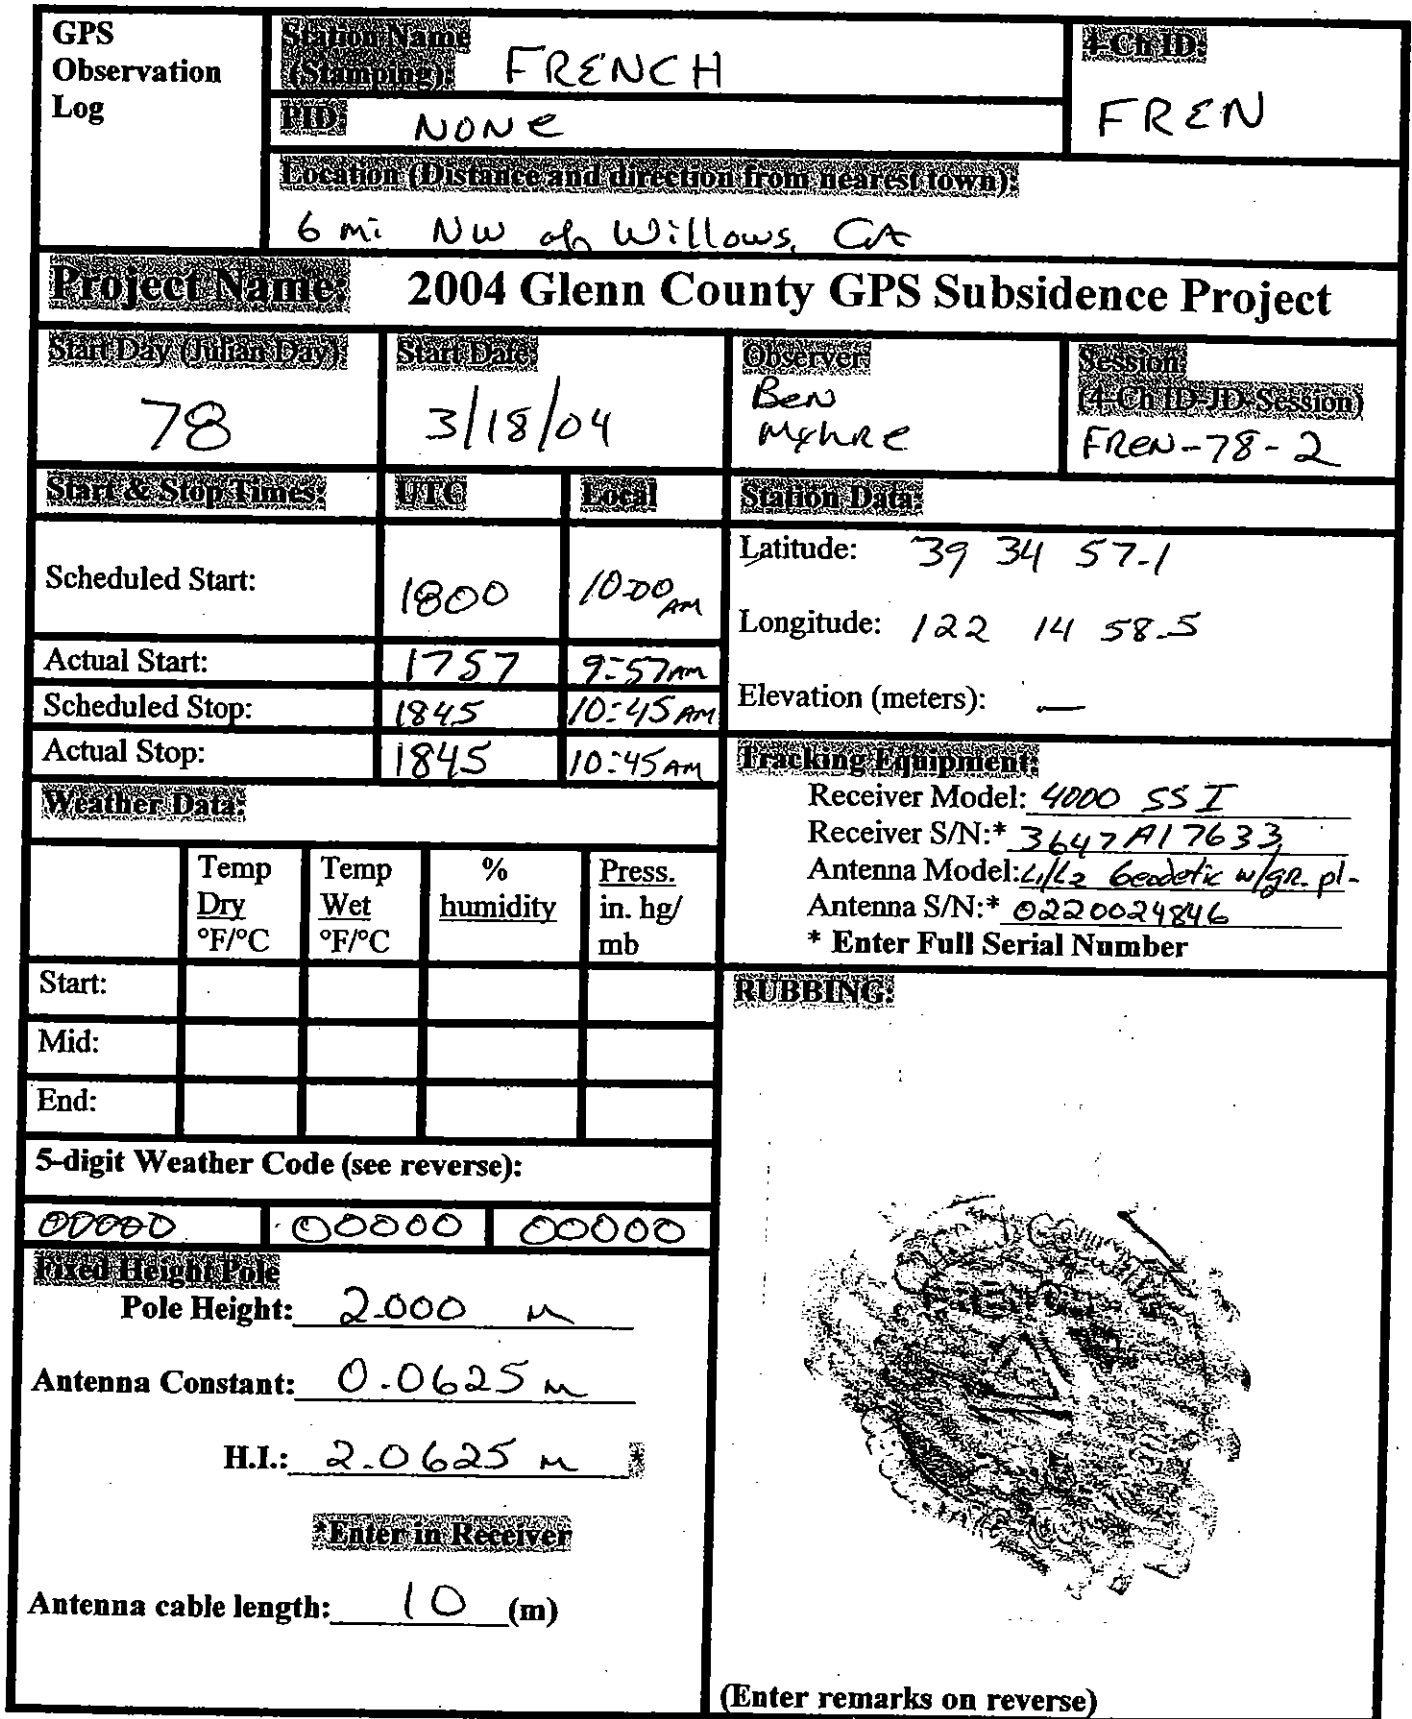 GPS
Observation
Log
Station Name
(Stamping): FRENCH
4-Ch ID:
FREN
PID: NONE
Location (Distance and direction from nearest town):
6 mi NW of Willows, CA
Project Name: 2004 Glenn County GPS Subsidence Project
Start Day (Julian Day):
78
Start Date:
3/18/04
Observer:
Ben
Myhre
Session:
(4-Ch ID-JD-Session)
FREN-78-2
Start & Stop Times: UTC Local
Scheduled Start: 1800 10:00 AM
Actual Start: 1757 9:57 AM
Scheduled Stop: 1845 10:45 AM
Actual Stop: 1845 10:45 AM
Station Data:
Latitude: 39 34 57.1
Longitude: 122 14 58.5
Elevation (meters): —
Tracking Equipment:
Receiver Model: 4000 SSI
Receiver S/N:* 3647A17633
Antenna Model: L1/L2 Geodetic w/gr. pl.
Antenna S/N:* 0220024846
* Enter Full Serial Number
Weather Data:
Temp
Dry
°F/°C
Temp
Wet
°F/°C
%
humidity
Press.
in. hg/
mb
Start:
Mid:
End:
5-digit Weather Code (see reverse):
00000 00000 00000
Fixed Height Pole
Pole Height: 2.000 m
Antenna Constant: 0.0625 m
H.I.: 2.0625 m *
*Enter in Receiver
Antenna cable length: 10 (m)
RUBBING:
FRENCH
(Enter remarks on reverse)